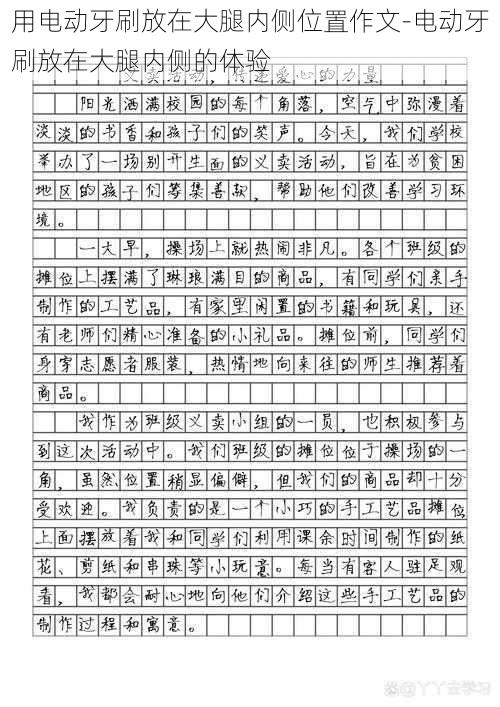 用电动牙刷放在大腿内侧位置作文-电动牙
刷放在大腿内侧的体验
义卖活动，传递爱心的力量
阳光洒满校园的每个角落，空气中弥漫着
淡淡的书香和孩子们的笑声。今天，我们学校
举办了一场别开生面的义卖活动，旨在为贫困
地区的孩子们筹集善款，帮助他们改善学习环
境。
一大早，操场上就热闹非凡。各个班级的
摊位上摆满了琳琅满目的商品，有同学们亲手
制作的工艺品，有家里闲置的书籍和玩具，还
有老师们精心准备的小礼品。摊位前，同学们
身穿志愿者服装，热情地向来往的师生推荐着
商品。
我作为班级义卖小组的一员，也积极参与
到这次活动中。我们班级的摊位位于操场的一
角，虽然位置稍显偏僻，但我们的商品却十分
受欢迎。我负责的是一个小巧的手工艺品摊位
上面摆放着我和同学们利用课余时间制作的纸
花、剪纸和串珠等小玩意。每当有客人驻足观
看，我都会耐心地向他们介绍这些手工艺品的
制作过程和寓意。
@丫丫去学习